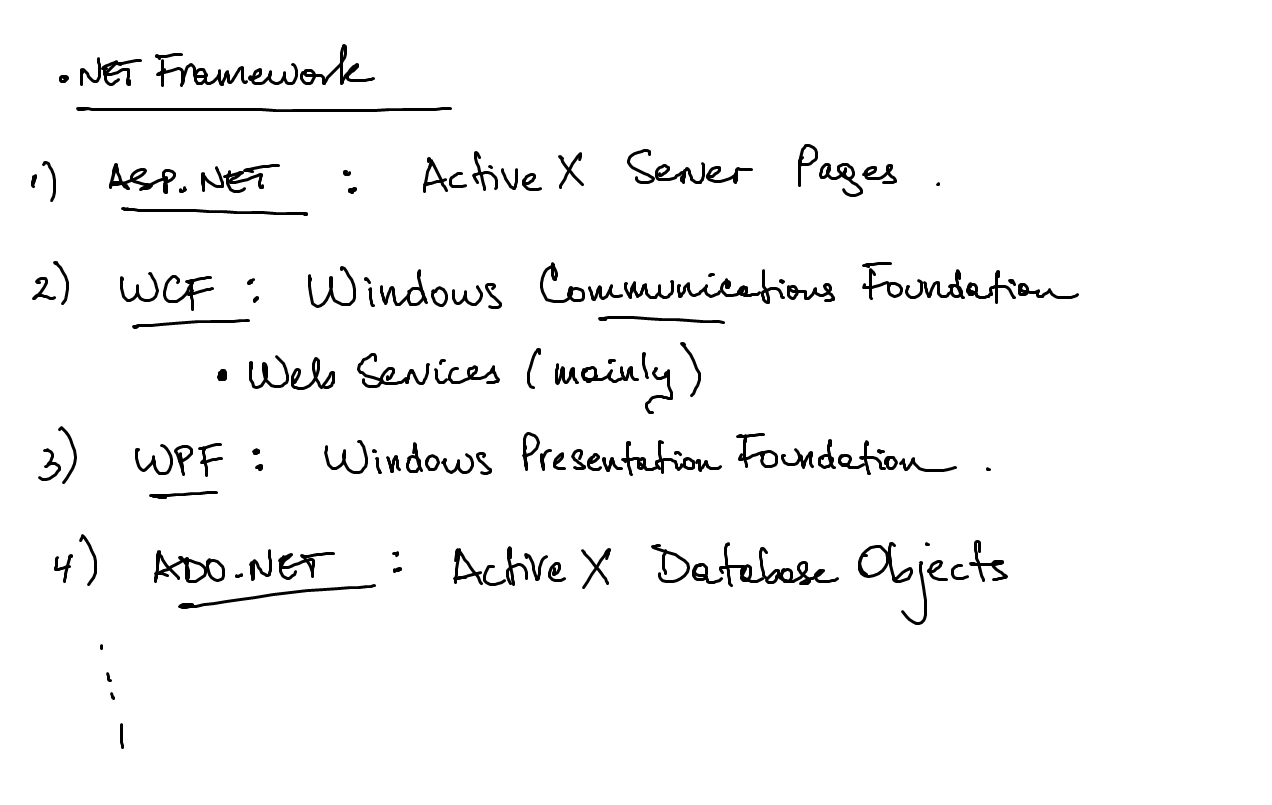 .NET Framework
1) ASP.NET : Active X Server Pages .
2) WCF : Windows Communications Foundation
• Web Services (mainly)
3) WPF : Windows Presentation Foundation .
4) ADO.NET : Active X Database Objects